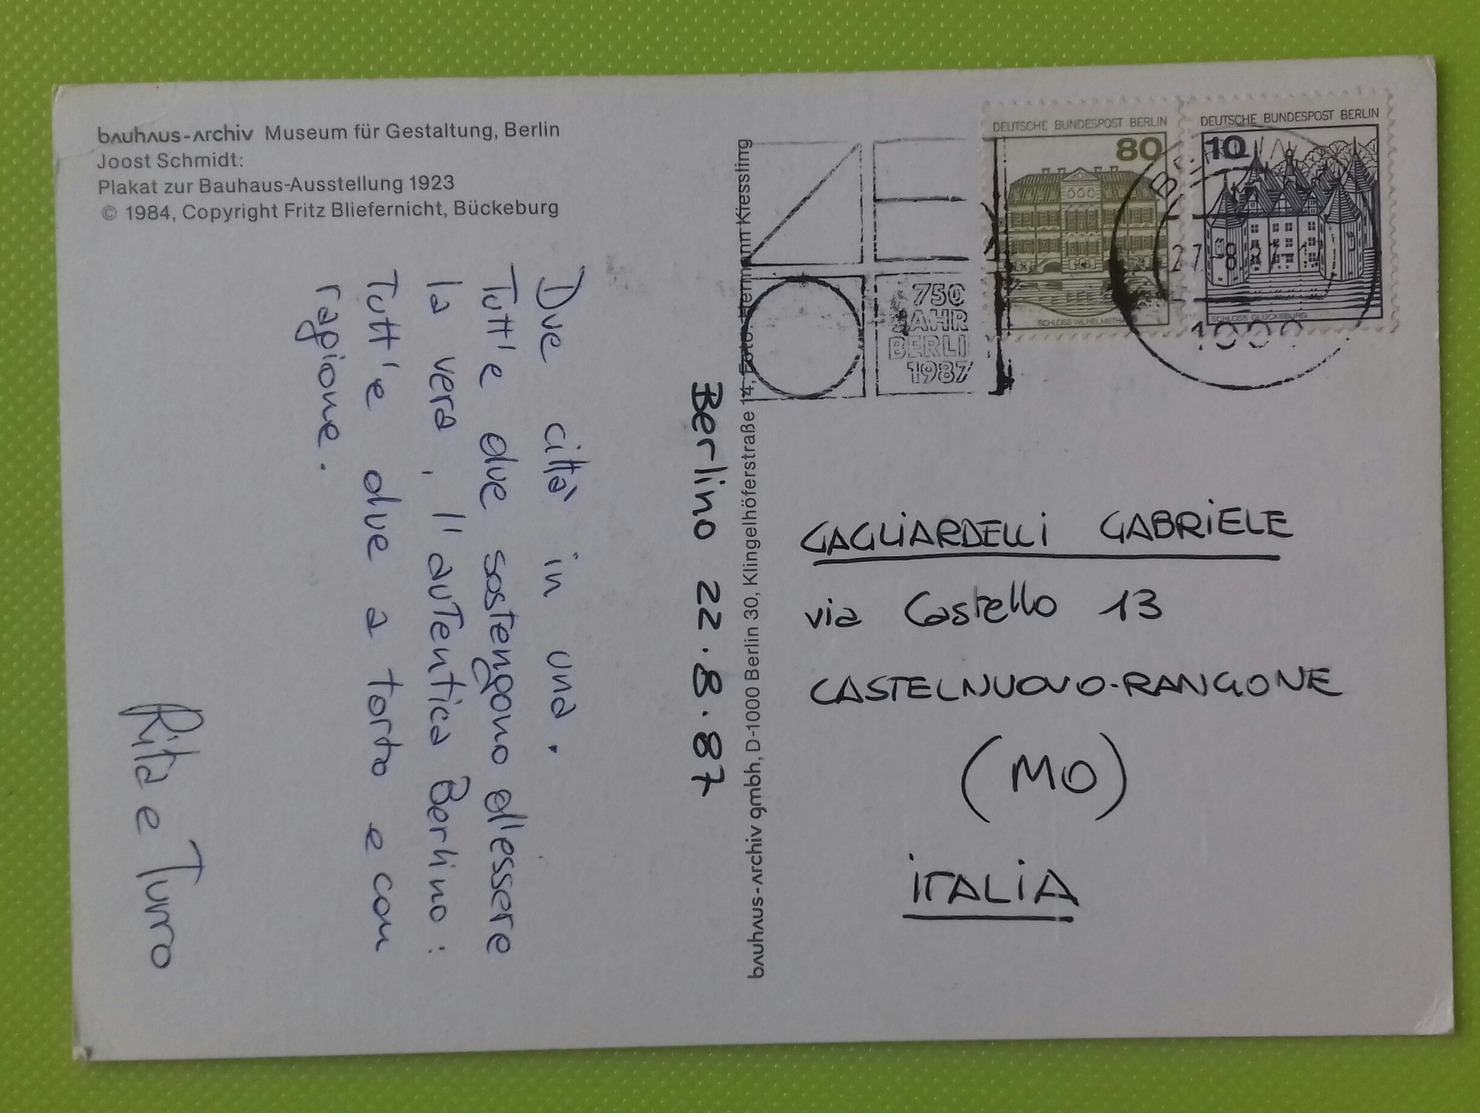 bauhaus-archiv Museum für Gestaltung, Berlin
Joost Schmidt:
Plakat zur Bauhaus-Ausstellung 1923
© 1984, Copyright Fritz Bliefernicht, Bückeburg
Due città in una.
Tutt'e due sostengono d'essere
la vera, l'autentica Berlino:
Tutt'e due a torto e con
ragione.
Rita e Turro
Berlino 22.8.87
bauhaus-archiv gmbh, D-1000 Berlin 30, Klingelhöferstraße 14, Foto: Hermann Kiessling
750
JAHR
BERLI
1987
DEUTSCHE BUNDESPOST BERLIN
80
SCHLOSS WILHELMSTHAL
DEUTSCHE BUNDESPOST BERLIN
10
SCHLOSS GLÜCKSBURG
1000
GAGLIARDELLI GABRIELE
via Castello 13
CASTELNUOVO-RANGONE
(MO)
ITALIA